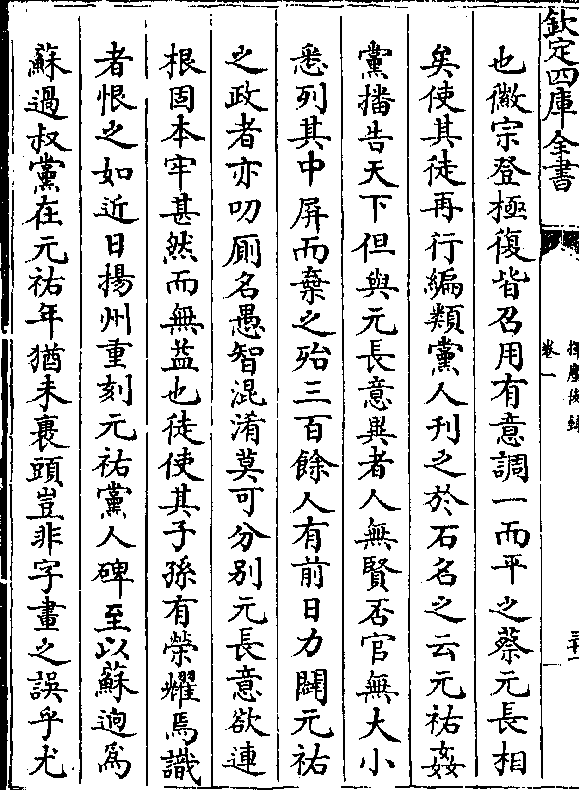 欽定四庫全書
揮麈後錄
卷一
三十一
也徽宗登極復皆召用有意調一而平之蔡元長相
矣使其徒再行編類黨人刊之於石名之云元祐姦
黨播告天下但與元長意異者人無賢否官無大小
悉列其中屏而棄之殆三百餘人有前日力闢元祐
之政者亦叨厠名愚智混淆莫可分别元長意欲連
根固本牢甚然而無益也徒使其子孫有榮耀焉識
者恨之如近日揚州重刻元祐黨人碑至以蘇迥爲
蘇過叔黨在元祐年猶未裹頭豈非字畫之誤乎尤